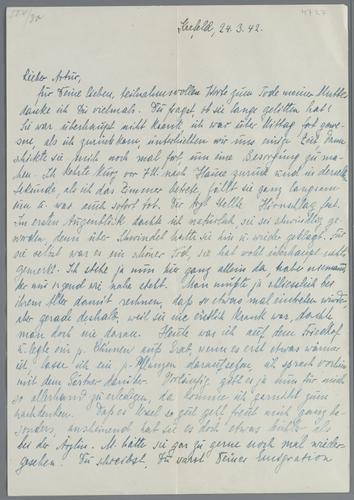 Krefeld, 24.3.42.
Lieber Artur,
für Deine lieben, teilnahmsvollen Worte zum Tode meiner Mutter
danke ich Dir vielmals. Du fragst, ob sie lange gelitten hat?
Sie war überhaupt nicht krank, ich war über Mittag fort gewe-
sen, als ich zurückkam, unterhielten wir uns einige Zeit, dann
schickte sie mich noch mal fort, um eine Besorgung zu ma-
chen. Ich kehrte kurz vor nach Hause zurück und in derselben
Sekunde, als ich das Zimmer betrete, fällt sie ganz langsam
um u. war auch sofort tot. Der Arzt stellte Hirnschlag fest.
Im ersten Augenblick dachte ich natürlich sie sei ohnmächtig ge-
worden, denn über Schwindel hatte sie hin u. wieder geklagt. Für
sie selbst war es ein schöner Tod, sie hat wohl überhaupt nichts
gemerkt. Ich stehe ja nun hier ganz allein da, habe niemand,
der mir irgend wie nahe steht. Man mußte ja schliesslich bei
ihrem Alter damit rechnen, daß so etwas mal eintreten würde
aber gerade deshalb, weil sie nie ernstlich krank war, dachte
man doch nie daran. Heute war ich auf dem Friedhof
u. legte ein p. Blumen aufs Grab, wenn es erst etwas wärmer
ist, lasse ich ein p. Pflanzen daraufsetzen, ich sprach vorhin
mit dem Gärtner darüber. Vorläufig gibt es ja nun für mich
so allerhand zu erledigen, da komme ich garnicht zum
nachdenken. Daß es Ursel so gut geht freut mich ganz be-
sonders, anscheinend hat sie es doch etwas besser als
bei der M. hätte sie gar zu gerne noch mal wieder-
gesehen! Du schreibst, Du warst Deiner Emigration